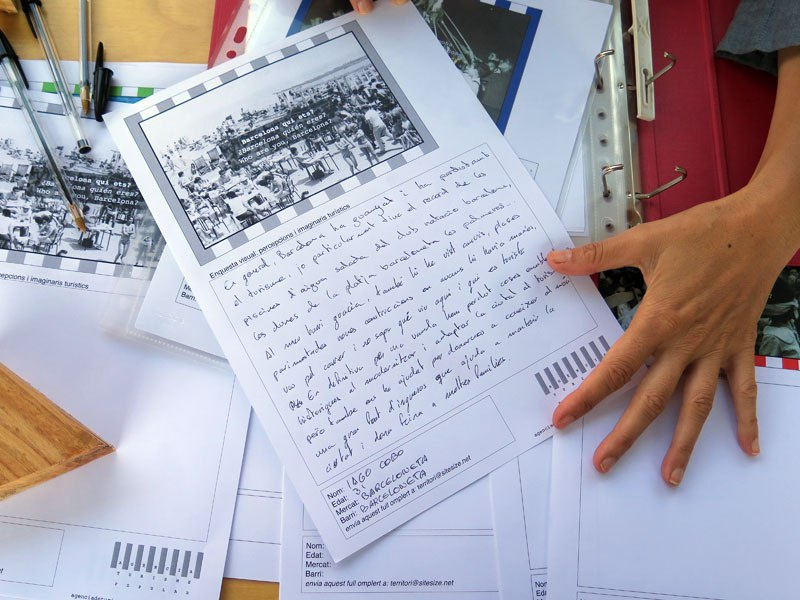 Barcelona qui ets?
¿Barcelona quién eres?
Who are you, Barcelona?
Enquesta visual, percepcions i imaginaris turístics
En general, Barcelona ha guanyat i ha perdut amb
el turisme, jo particularment tinc el record de les
piscines d'aigua salada del club natació barcelona,
les dones de la platja barceloneta les palmeres...
Al meu barri gracia, també hi he vist canvis, places
noves construccions en
pel carrer i no saps qui viu aquí i qui es turista
En definitiva per una banda hem perdut coses
històriques al modernitzar i adaptar la ciutat al turisme
però també ens ha ajudat per donarnos a conèixer al món
una gran font d'ingresos que ajuda a mantenir la
ciutat i dona feina a moltes families.
Nom: IAGO COBO
Edat: 31
Mercat: BARCELONETA
Barri: BARCELONETA
envia aquest full omplert a: territori@sitesize.net
Barcelona qui ets?
¿Barcelona quién eres?
Who are you, Barcelona?
Enquesta visual, percepcions i imaginaris turístics
Nom:
Edat:
Mercat:
Barri:
envia aquest full omplert a: territori@sitesize.net